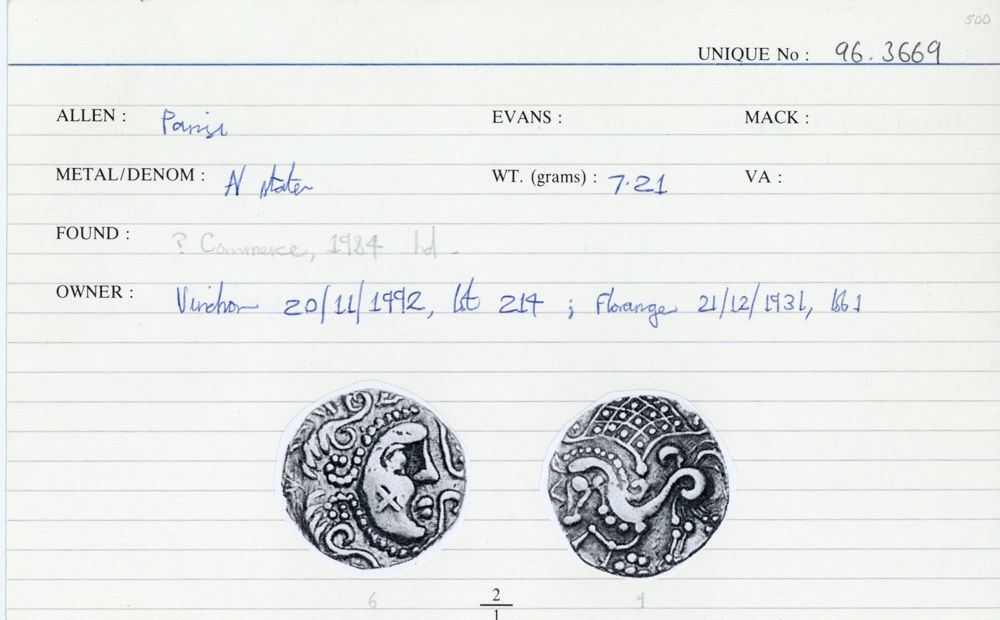 500
UNIQUE No : 96.3669
ALLEN : Parisi EVANS : MACK :
METAL/DENOM : N stater WT. (grams) : 7.21 VA :
FOUND : ? Commerce, 1984 hd.
OWNER : Vinchon 20/11/1992, lot 214 ; Florange 21/12/1931, lot 1
6 2 9
1